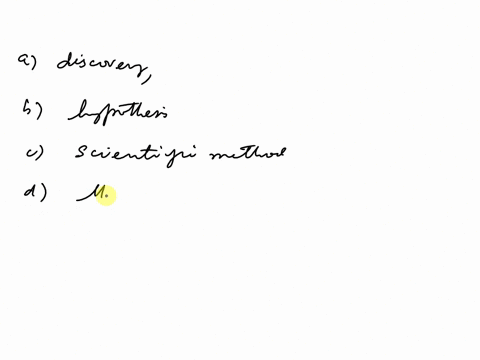 a) discovery,
b) hypothesis
c) Scientific method
d) M